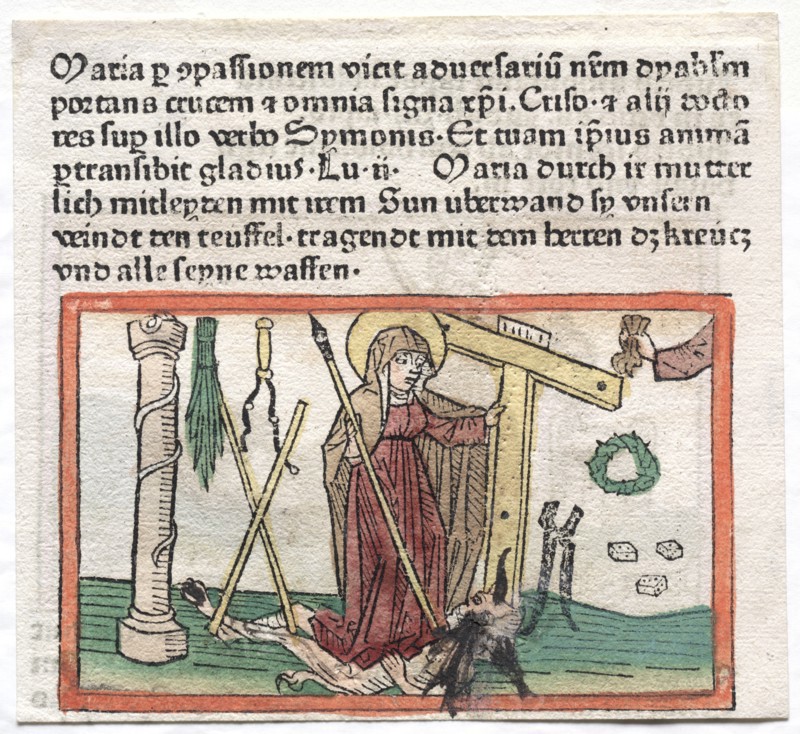 Maria ꝑ ꝯpassionem vicit aduersariū nr̄m dyabl̄m
portans crucem ⁊ omnia signa xp̄i. Criso. ⁊ alij docto
res sup̱ illo verbo Symonis. Et tuam ip̄ius animā
ꝑtransibit gladius. Lu. ii. Maria durch ir mutter
lich mitleyden mit irem Sun uberwand sy vnsern
veindt den teuffel. tragendt mit dem herren dz kreücz
vnd alle seyne waffen.